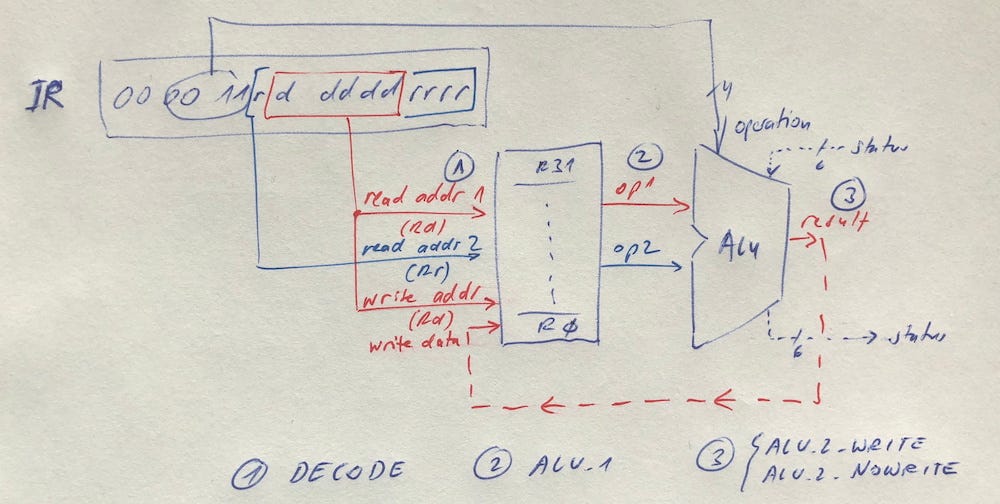 IR
00 00 11 r d dddd rrrr
4
operation
status
6
1
2
3
read addr 1
(Rd)
read addr 2
(Rr)
write addr
(Rd)
write data
R31
R0
op1
op2
ALU
result
status
6
1 DECODE
2 ALU_1
3 { ALU_2_WRITE
ALU_2_NOWRITE